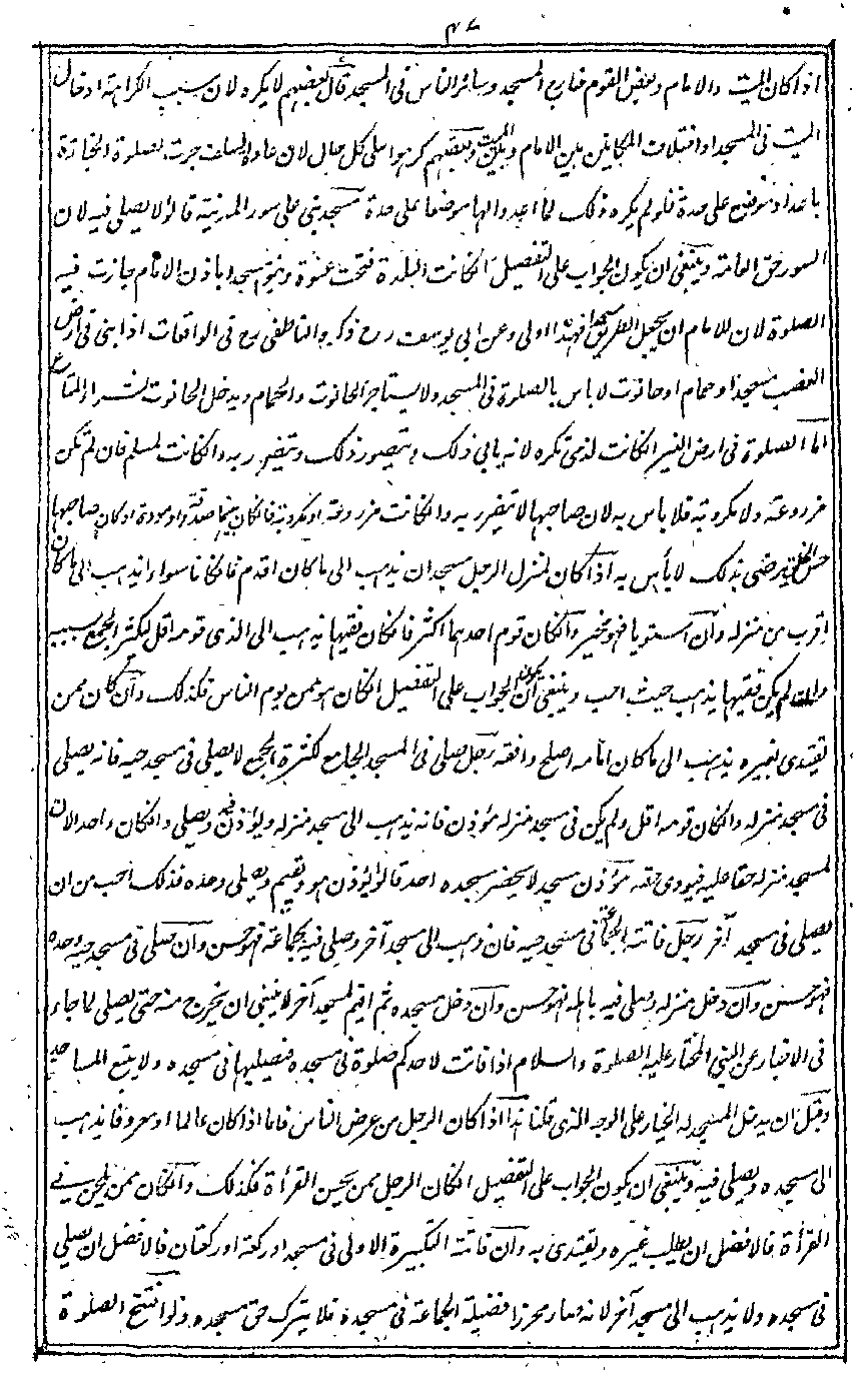 ٤٨
اذا كان الميت والامام وبعض القوم خارج المسجد وسائر الناس فى المسجد قال بعضهم لا يكره لان سبب الكراهة ادخال
الميت فى المسجد او اختلاف المكانين بين الامام وبين الميت وبعضهم كرهوا على كل حال لان عادة السلف جرت بصلوة الجنازة
باعداد موضع على حدة فلو لم يكره ذلك لما اعدوا لها موضعا على حدة مسجد بنى على سور المدينة قالوا لا يصلى فيه لان
السور حق العامة وينبغى ان يكون الجواب على التفصيل انكانت البلدة فتحت عنوة وبنى مسجدا باذن الامام جازت فيه
الصلوة لان للامام ان يجعل الطريق مسجدا فهذا اولى وعن ابى يوسف رح ذكره الناطفى رح فى الواقعات اذا بنى فى ارض
الغصب مسجدا او حمام او حانوت لا باس بالصلوة فى المسجد ولا يستاجر الحانوت والحمام ويدخل الحانوت لشراء المتاع
اما الصلوة فى ارض الغير انكانت لذمى تكره لانه يابى ذلك ويتضرر به وانكانت لمسلم فان لم تكن
مزروعة ولا مكروبة فلا باس به لان صاحبها لا يتضرر به وانكانت مزروعة او مكروبة فانكان بينهما صداقة او مودة او كان صاحبها
حسن الخلق يرضى بذلك لا بأس به اذا كان لمنزل الرجل مسجدان يذهب الى ما كان اقدم فانكانا سواء يذهب الى ما كان
اقرب من منزله وان استويا فهو مخير وانكان قوم احدهما اكثر فانكان فقيها يذهب الى الذى قومه اقل ليكثر الجمع بسببه
وان لم يكن فقيها يذهب حيث احب وينبغى ان يكون الجواب على التفصيل انكان هو ممن يوم الناس فكذلك وان كان ممن
يقتدى بغيره يذهب الى ما كان امامه اصلح وافقه رجل صلى فى المسجد الجامع لكثرة الجمع لا يصلى فى مسجد حيه فانه يصلى
فى مسجد منزله وانكان قومه اقل ولم يكن فى مسجد منزله مؤذن فانه يذهب الى مسجد منزله ويؤذن فيه ويصلى وانكان واحدا لان
لمسجد منزله حقا عليه فيودى حقه مؤذن مسجد لا يحضر مسجده احد قالوا يؤذن هو ويقيم ويصلى وحده فذلك احب من ان
يصلى فى مسجد آخر رجل فاتته الجماعة فى مسجد حيه فان ذهب الى مسجد آخر وصلى فيه بجماعة فهو حسن وان صلى فى مسجد حيه وحده
فهو حسن وان دخل منزله وصلى فيه باهله فهو حسن وان دخل مسجده ثم اقيم لمسجد آخر لا ينبغى ان يخرج منه حتى يصلى لما جاء
فى الاخبار عن النبى المختار عليه الصلوة والسلام اذا فاتت لاحدكم صلوة فى مسجده فليصليها فى مسجده ولا يتبع المساجد
وقبل ان يدخل المسجد له الخيار على الوجه الذى قلنا هذا اذا كان الرجل من عرض الناس فاما اذا كان عالما او معروفا يذهب
الى مسجده ويصلى فيه وينبغى ان يكون الجواب على التفصيل انكان الرجل ممن يحسن القرأة فكذلك وانكان ممن يلحن فى
القرأة فالافضل ان يطلب غيره ويقتدى به وان فاتته التكبيرة الاولى فى مسجده او ركعة او ركعتان فالافضل ان يصلى
فى مسجده ولا يذهب الى مسجد آخر لانه صار محرزا فضيلة الجماعة فى مسجده فلا يترك حق مسجده ولو افتتح الصلوة